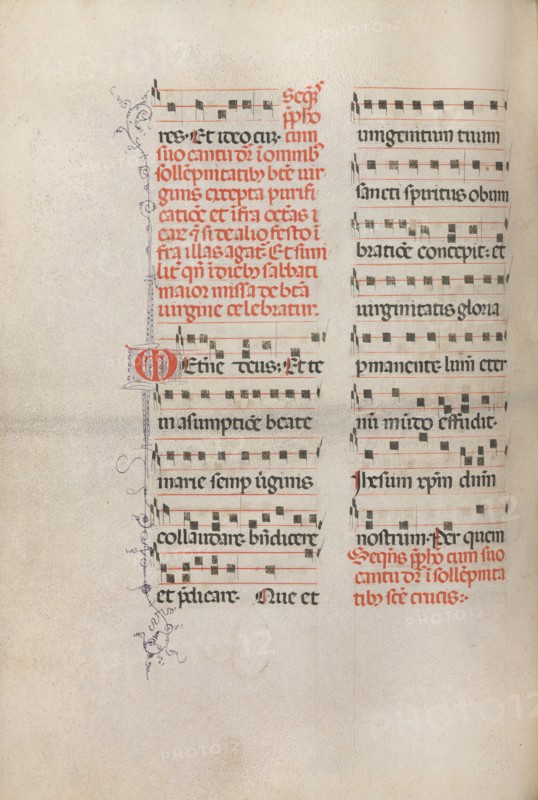 Seq̃s
p̃pho
res. Et ideo cur. cum
suo cantu dr̃ ĩ omnib⁹
sollẽpnitatib⁹ bẽe vir
ginis excepta purifi
catiõe et ĩfra oct̃as ⁊
ear̃ ⁊ si de alio festo ĩ
fra illas agat̃. Et simi
lit̃ qñ ĩ dieb⁹ sabbati
maior missa de bẽa
virgine celebratur.
Et te
in asumptiõe beate
marie semp ṽginis
collaudare bñdicere
et p̃dicare. Que et
unigenitum tuum
sancti spiritus obum
bratiõe concepit: et
virginitatis gloria
pmanente lum̃ eter
nũ mũdo effudit.
Ihesum xp̃m dñm
nostrum. Per quem
Seq̃ns p̃pho cum suo
cantu dr̃ ĩ sollẽpnita
tib⁹ sc̃e crucis: